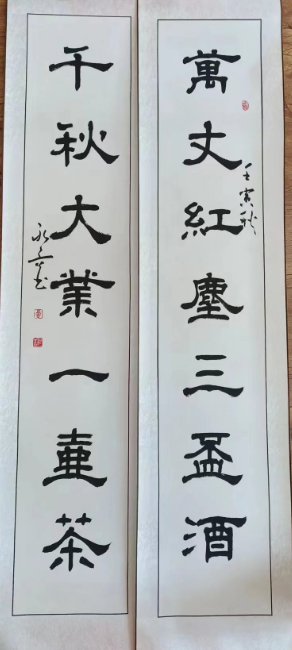 萬丈紅塵三盃酒
壬寅秋
千秋大業一壷茶